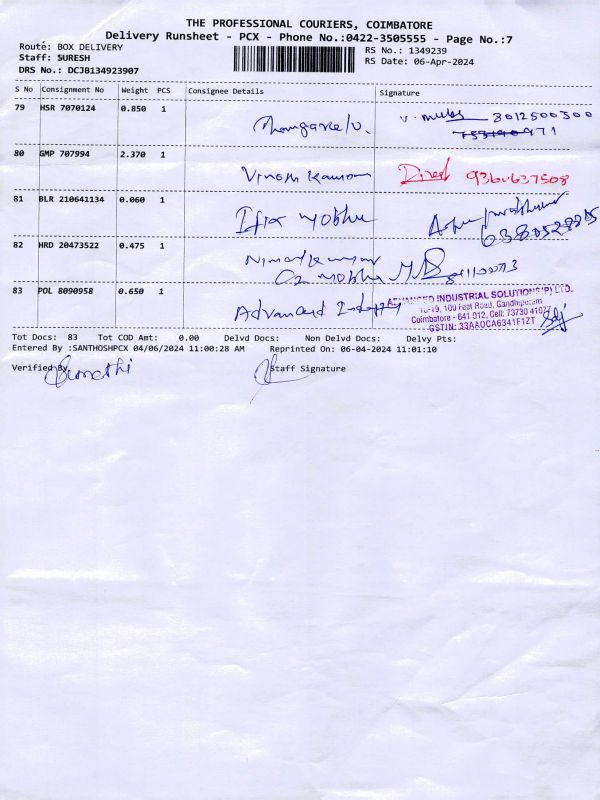 THE PROFESSIONAL COURIERS, COIMBATORE
Delivery Runsheet - PCX - Phone No.:0422-3505555 - Page No.:7
Route: BOX DELIVERY
RS No.: 1349239
Staff: SURESH
RS Date: 06-Apr-2024
DRS No.: DCJB134923907
S No Consignment No Weight PCS Consignee Details Signature
79 HSR 7070124 0.850 1
8012500300
80 GMP 707994 2.370 1
Vinoth Kumar Direct 9360637508
81 BLR 210641134 0.060 1
82 HRD 20473522 0.475 1
83 POL 8090958 0.650 1
Advanced
ADVANCED INDUSTRIAL SOLUTIONS (P) LTD.
100 Feet Road, Gandhipuram
Coimbatore - 641 012. Cell: 73730 41027
GSTIN: 33AAOCA6341F1ZT
Tot Docs: 83 Tot COD Amt: 0.00 Delvd Docs: Non Delvd Docs: Delvy Pts:
Entered By :SANTHOSHPCX 04/06/2024 11:00:28 AM Reprinted On: 06-04-2024 11:01:10
Verified By Staff Signature